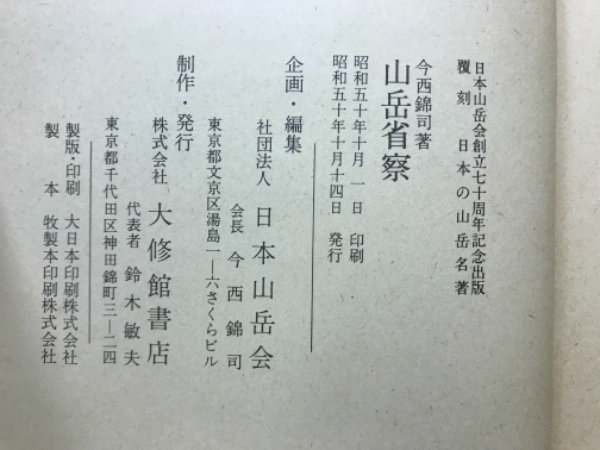 日本山岳会創立七十周年記念出版
覆刻 日本の山岳名著
今西錦司著
山岳省察
昭和五十年十月 一 日 印刷
昭和五十年十月十四日 発行
企画・編集
社団法人 日本山岳会
会長 今西錦司
東京都文京区湯島一—六さくらビル
制作・発行
株式会社 大修館書店
代表者 鈴木敏夫
東京都千代田区神田錦町三—二四
製版・印刷 大日本印刷株式会社
製本 牧製本印刷株式会社